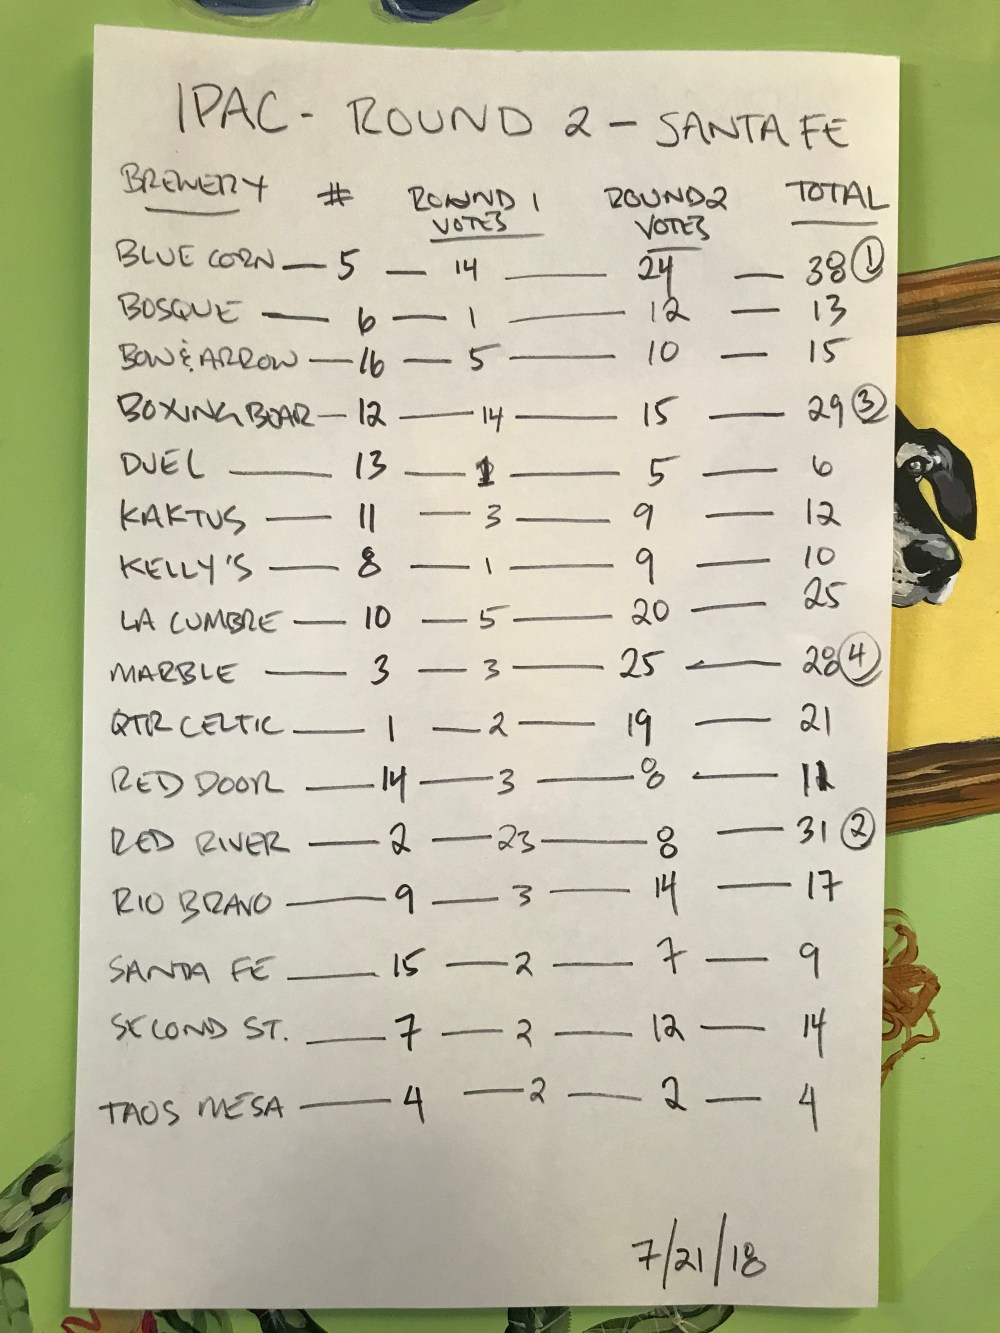 IPAC - ROUND 2 - SANTA FE
BREWERY # ROUND 1 VOTES ROUND 2 VOTES TOTAL
BLUE CORN — 5 — 14 — 24 — 38 ①
BOSQUE — 6 — 1 — 12 — 13
BOW & ARROW — 16 — 5 — 10 — 15
BOXING BEAR — 12 — 14 — 15 — 29 ③
DUEL — 13 — 1 — 5 — 6
KAKTUS — 11 — 3 — 9 — 12
KELLY'S — 8 — 1 — 9 — 10
LA CUMBRE — 10 — 5 — 20 — 25
MARBLE — 3 — 3 — 25 — 28 ④
QTR CELTIC — 1 — 2 — 19 — 21
RED DOOR — 14 — 3 — 8 — 11
RED RIVER — 2 — 23 — 8 — 31 ②
RIO BRAVO — 9 — 3 — 14 — 17
SANTA FE — 15 — 2 — 7 — 9
SECOND ST. — 7 — 2 — 12 — 14
TAOS MESA — 4 — 2 — 2 — 4
7/21/18